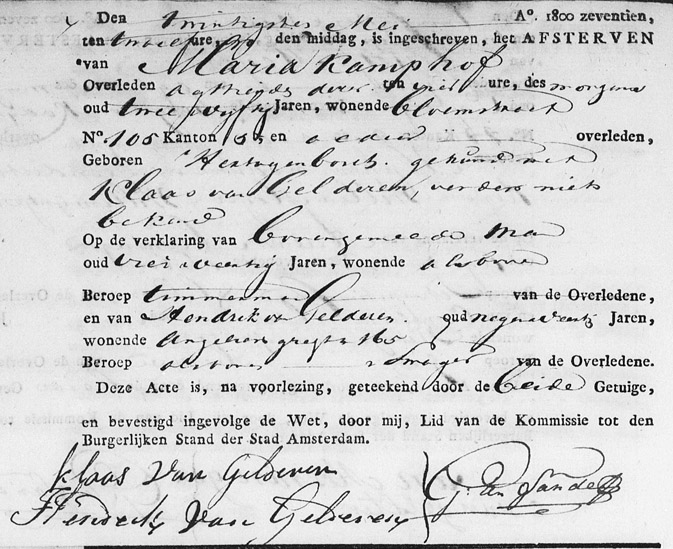 Den twintigsten Mei A°. 1800 zeventien,
ten twee ure, den middag, is ingeschreven, het AFSTERVEN
van Maria Kamphof
Overleden agttiende dezer ten vier ure, des morgens
oud twee vyftig Jaren, wonende Bloemstraat
N°. 105 Kanton en aldaar overleden,
Geboren Hertogenbosch gehuwd met
Klaas van Gelderen, verders niets
bekend
Op de verklaring van Bovengemeede Man
oud Jaren, wonende als boven
Beroep timmerman van de Overledene,
en van Hendrik v Gelderen oud Jaren,
wonende 165
Beroep als boven Swager van de Overledene.
Deze Acte is, na voorlezing, geteekend door de beide Getuige,
en bevestigd ingevolge de Wet, door mij, Lid van de Kommissie tot den
Burgerlijken Stand der Stad Amsterdam.
klaas Van Gelderen
Hendrik Van Gelderen